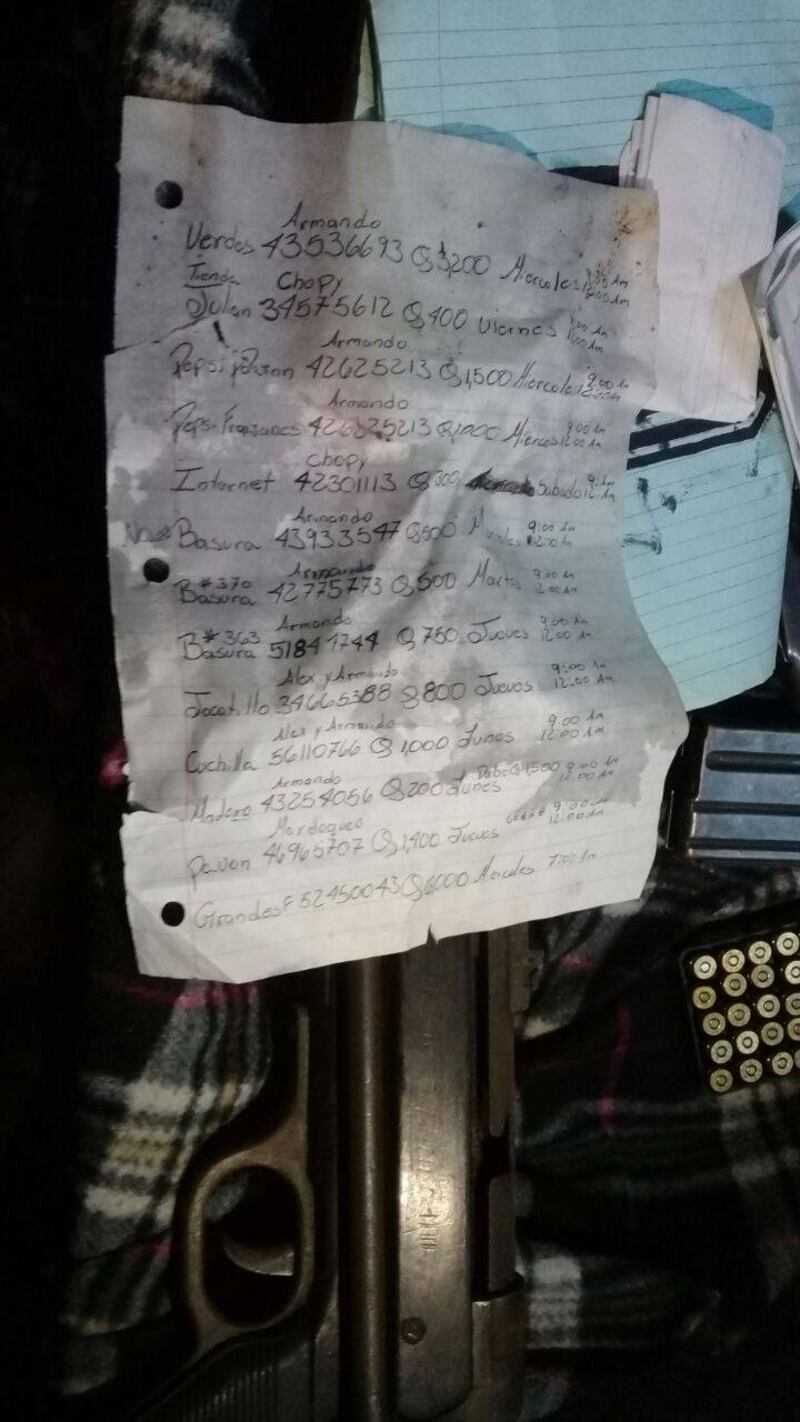 Armando
Verdes 43536693 Q3,200 Miercoles 9:00 Am
12:00 Am
Tienda Chopy
Julian 34575612 Q,400 viernes 9:00 Am
Armando
Pepsi Pavon 42625213 Q1,500 Miercole 9:00 Am
12:00
Armando
Pepsi Fraijanes 42625213 Miercoles 9:00 Am
12:00 Am
Chopy
Internet 42301113 Q 300 Sabado
Armando
Basura 43933547 Q500 9:00 Am
12:00 Am
#370 Armando
Basura 42775773 Q500 Martes 9:00 Am
12:00 Am
B#363 Armando
Basura 51841744 Q,750 Jueves 9:00 Am
12:00 Am
Alex y Armando
34665388 Q800 Jueves 9:00 Am
12:00 Am
Alex y Armando
Cuchilla 56110766 Q 1,000 Lunes 9:00 Am
12:00 Am
Armando
43254056 Q200 Lunes Debe Q1,500 9:00 Am
12:00 Am
Mardoqueo
Pavon 46965707 Q1,400 Jueves 9:00 Am
12:00 Am
Grandes F 52450043 Q6000 7:00 Am